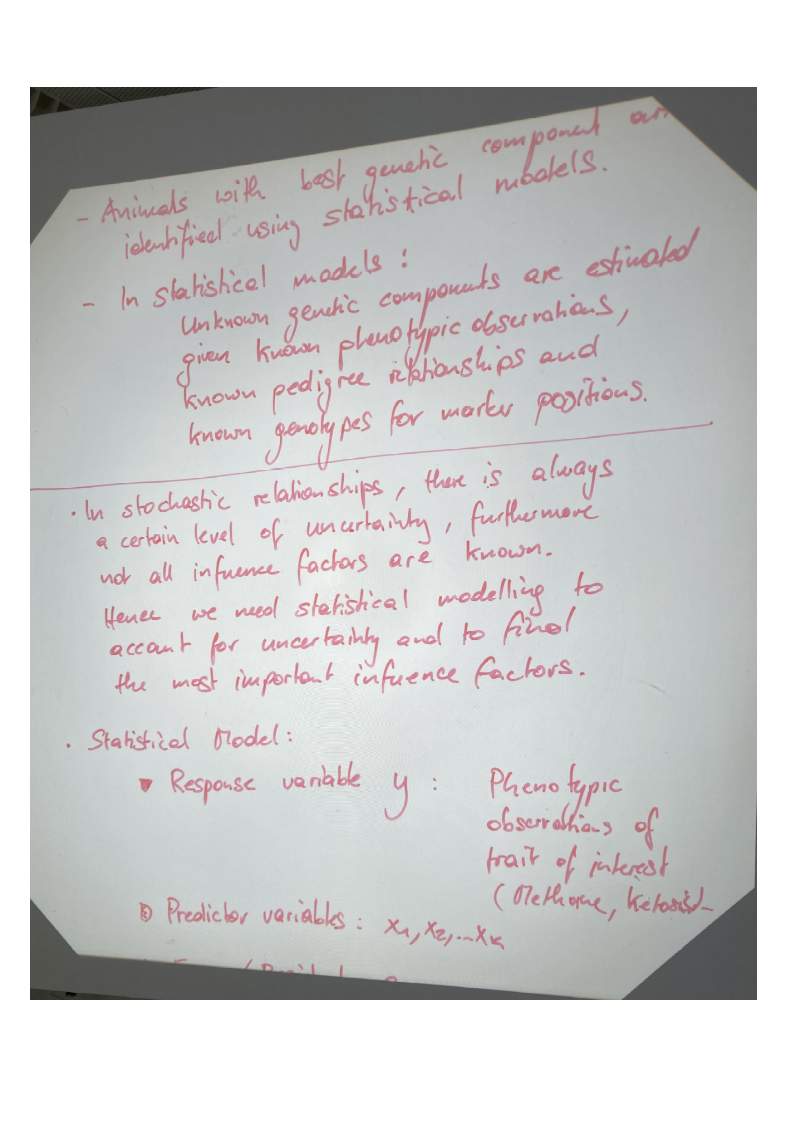 - Animals with best genetic component
identified using statistical models.
- In statistical models :
Unknown genetic components are estimated
given known phenotypic observations,
known pedigree relationships and
known genotypes for marker positions.
· In stochastic relationships, there is always
a certain level of uncertainty, furthermore
not all infuence factors are known.
Hence we need statistical modelling to
account for uncertainty and to find
the most important infuence factors.
· Statistical Model:
Response variable y : Phenotypic
observations of
trait of interest
(Methane, Ketosis
Predictor variables : x₁, x₂, ... xₖ